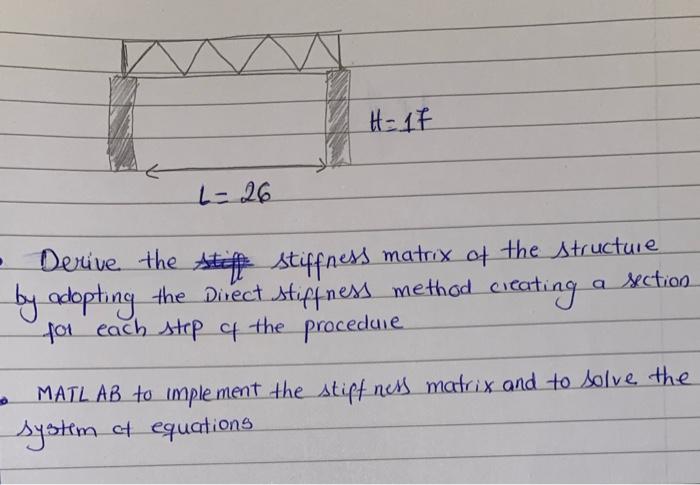 H=17
L= 26
Derive the stiffness matrix of the structure
by adopting the Direct stiffness method creating a section
for each step of the procedure
MATLAB to implement the stiffness matrix and to solve the
system of equations